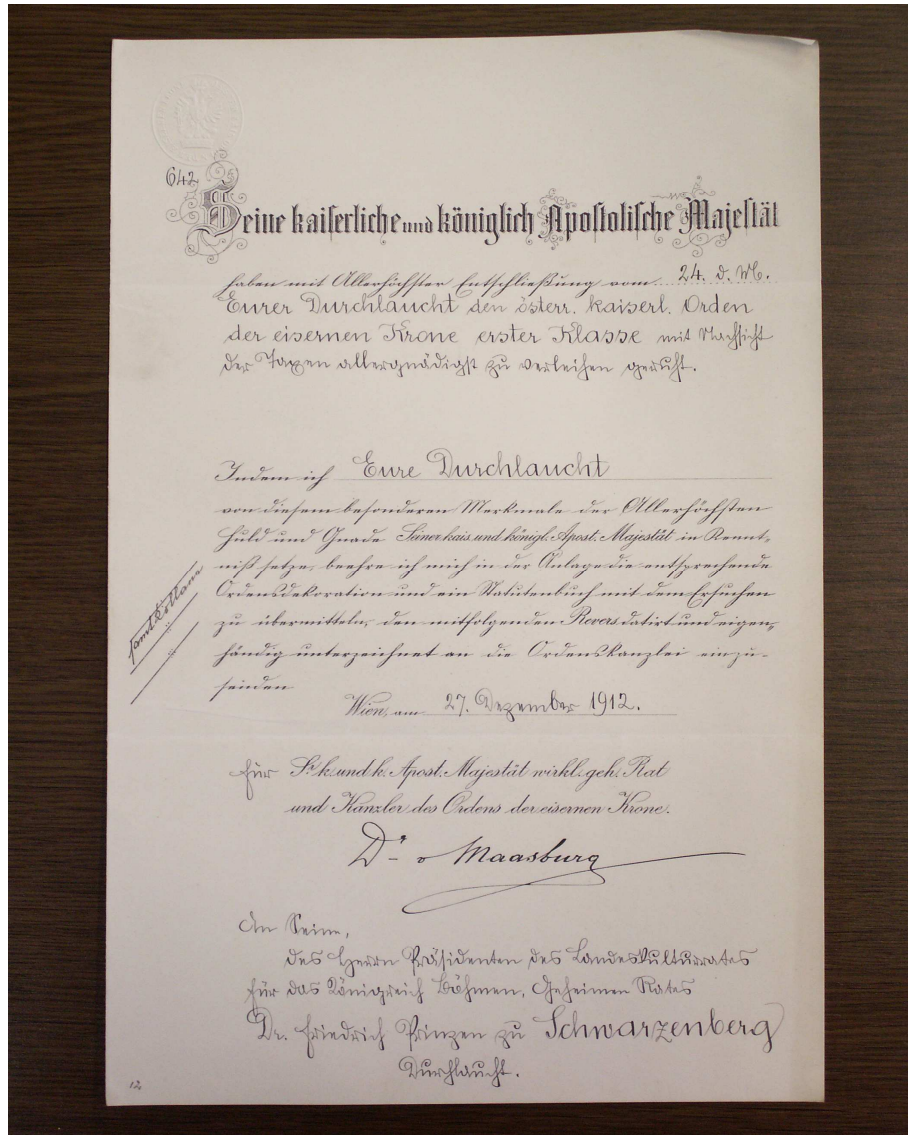 642
Seine kaiserliche und königlich Apostolische Majestät
haben mit Allerhöchster Entschließung vom 24. d. M.
Eurer Durchlaucht den österr. kaiserl. Orden
der eisernen Krone erster Klasse mit Nachsicht
der Taxen allergnädigst zu verleihen geruht.
Indem ich Eure Durchlaucht
von diesem besonderen Merkmale der Allerhöchsten
Huld und Gnade Seiner kais. und königl. Apost. Majestät in Kennt-
niß setze, beehre ich mich in der Anlage die entsprechende
Ordensdekoration und ein Statutenbuch mit dem Ersuchen
zu übermitteln, den mitfolgenden Revers datirt und eigen-
händig unterzeichnet an die Ordenskanzlei einzu-
senden
samt Kollane
Wien, am 27. Dezember 1912.
Für Sr. k. und k. Apost. Majestät wirkl. geh. Rat
und Kanzler des Ordens der eisernen Krone.
Dr. v Maasburg
An Seine,
des Herrn Präsidenten des Landeskulturrates
für das Königreich Böhmen, Geheimen Rates
Dr. Friedrich Prinzen zu Schwarzenberg
Durchlaucht.
12